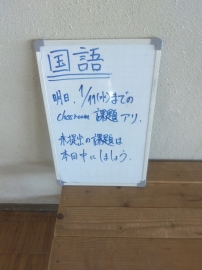 国語
明日、1/19(水)までの
Classroom 課題アリ。
未提出の課題は
本日中にしましょう。